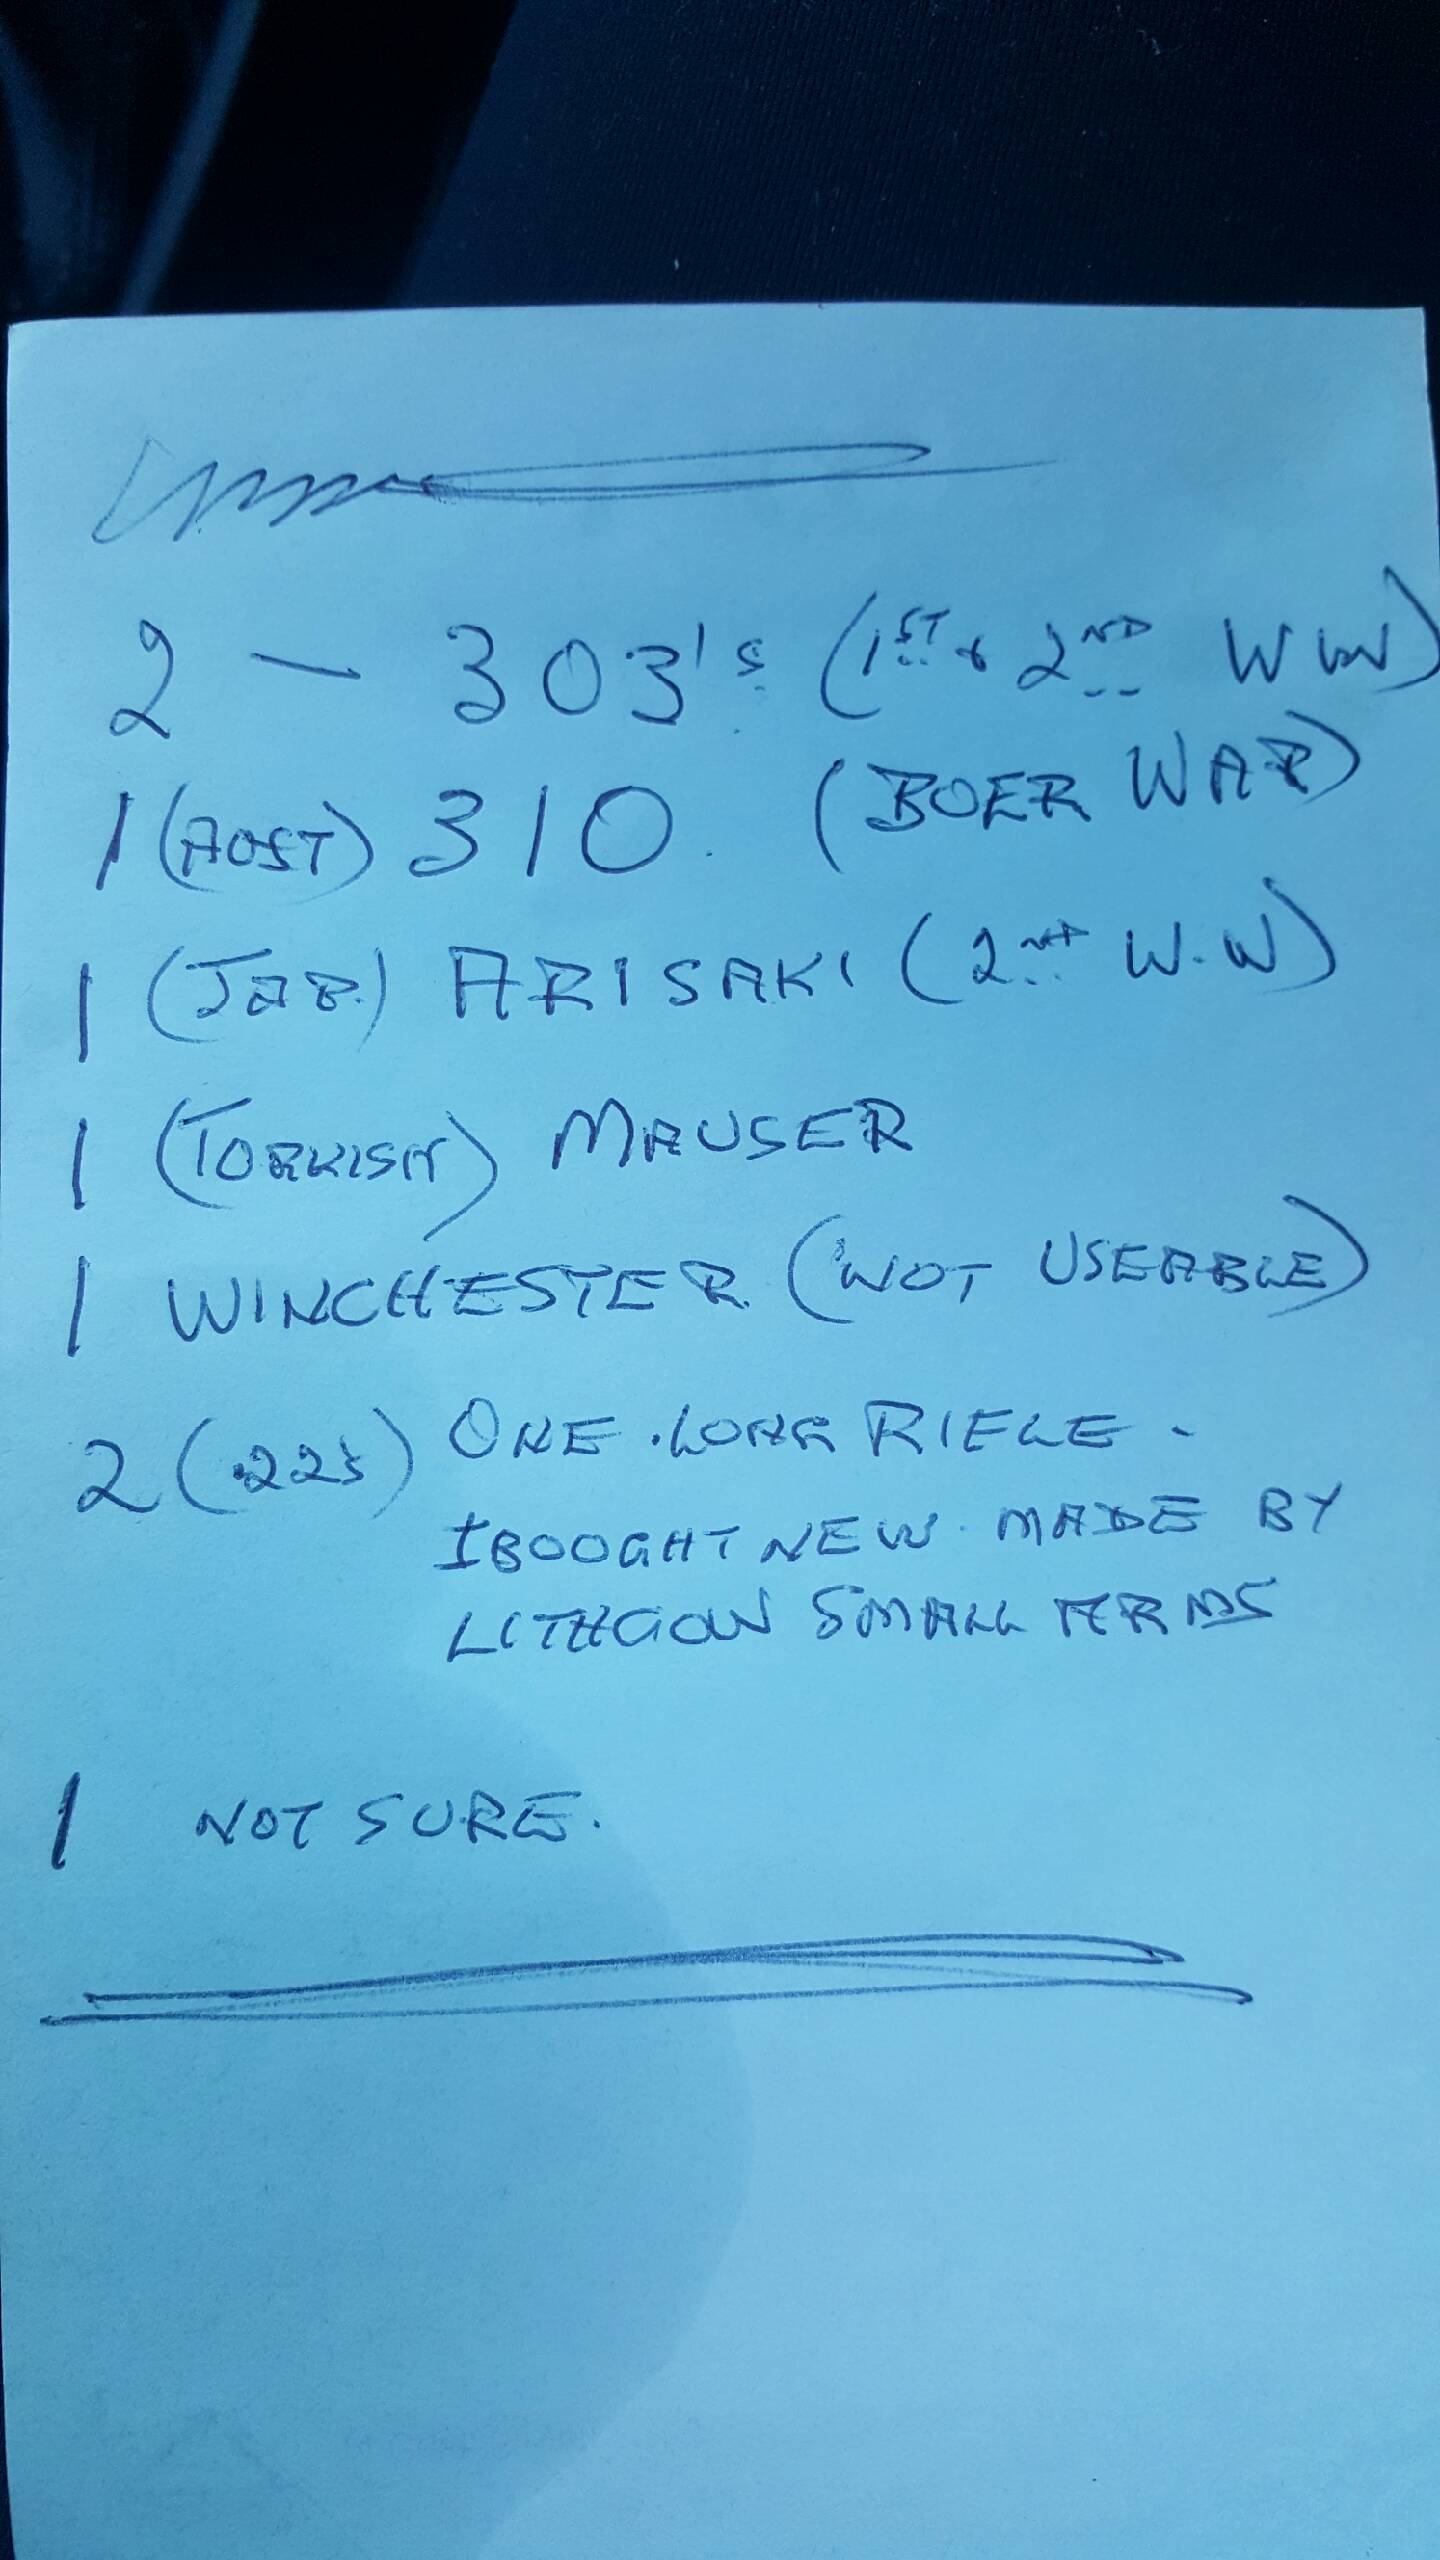 2 - 303's (1ST & 2ND WW)
1 (AUST) 310. (BOER WAR)
1 (JAP.) ARISAKI (2ND W.W)
1 (TURKISH) MAUSER
1 WINCHESTER (NOT USEABLE)
2 (.22s) ONE .LONG RIFLE -
I BOUGHT NEW. MADE BY
LITHGOW SMALL ARMS
1 NOT SURE.